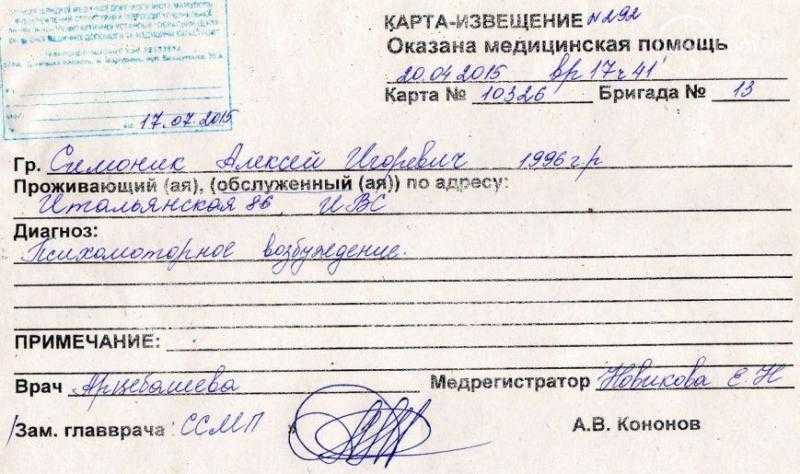 КАРТА-ИЗВЕЩЕНИЕ №292
Оказана медицинская помощь
20.04.2015 вр 17ч 41'
Карта № 10326 Бригада № 13
17.07.2015
Гр. Симоник Алексей Игоревич 1996 г.р
Проживающий (ая), (обслуженный (ая)) по адресу:
Итальянская 86 ИВС
Диагноз:
Психомоторное возбуждение.
ПРИМЕЧАНИЕ:
Врач Арцебашева Медрегистратор Новикова Е.Н
/Зам. главврача ССМП А.В. Кононов